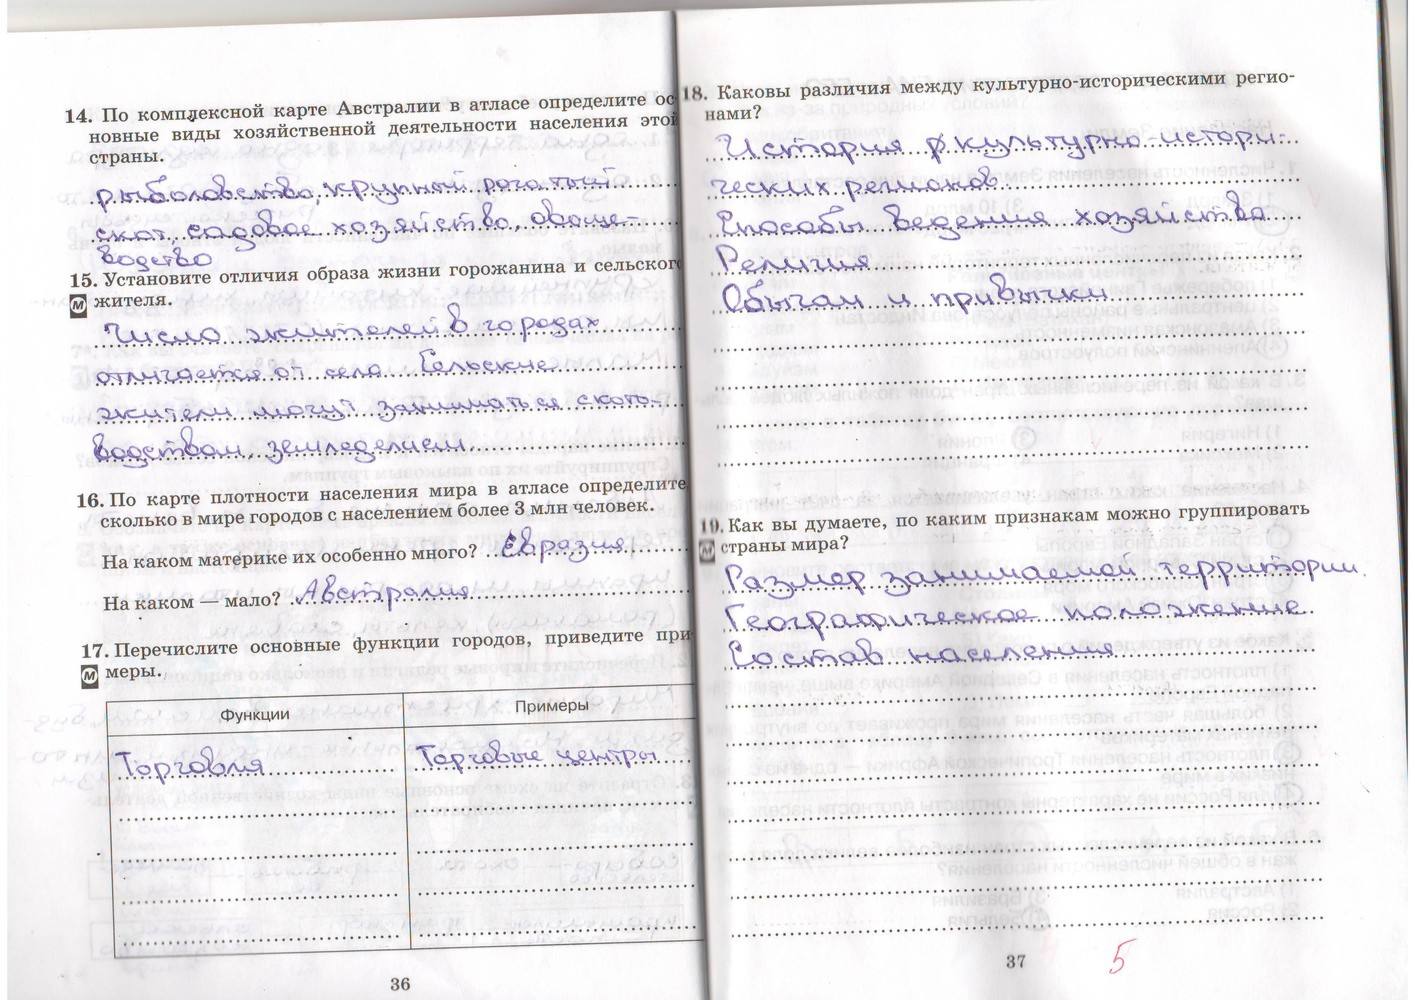 14. По комплексной карте Австралии в атласе определите ос-
новные виды хозяйственной деятельности населения этой
страны.
рыболовство, крупный рогатый
скот, садовое хозяйство, овоще-
водство
15. Установите отличия образа жизни горожанина и сельского
М жителя.
Число жителей в городах
отличается от села. Сельские
жители могут заниматься ското-
водством, земледелием
16. По карте плотности населения мира в атласе определите,
сколько в мире городов с населением более 3 млн человек.
На каком материке их особенно много? Евразия
На каком — мало? Австралия
17. Перечислите основные функции городов, приведите при-
М меры.
Функции Примеры
Торговля Торговые центры
36
18. Каковы различия между культурно-историческими регио-
нами?
История культурно-истори-
ческих регионов
Способы ведения хозяйства
Религия
Обычаи и привычки
19. Как вы думаете, по каким признакам можно группировать
М страны мира?
Размер занимаемой территории
Географическое положение
Состав населения
37
5